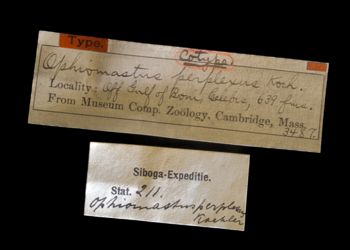 Type.
Cotype
Ophiomastus perplexus Koeh.
Locality: Off Gulf of Boni, Celebes, 639 fms.
From Museum Comp. Zoology, Cambridge, Mass.
3487.
Siboga-Expeditie.
Stat. 211.
Ophiomastus perplexus
Koehler